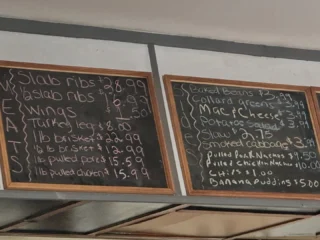 MEATS
Slab ribs 28.99
1/2 slab ribs
wings
Turkey leg 8.
1 lb brisket 22.99
1/2 lb brisket 12.99
1 lb pulled pork 15.59
1 lb pulled chicken 15.99
Baked Beans
Collard greens
Mac & Cheese
Potatoe Salad
Slaw 2.75
Smoked cabbage
Pulled Pork Nachos
Pulled Chicken Nachos
Chips 1.00
Banana Pudding $5.00